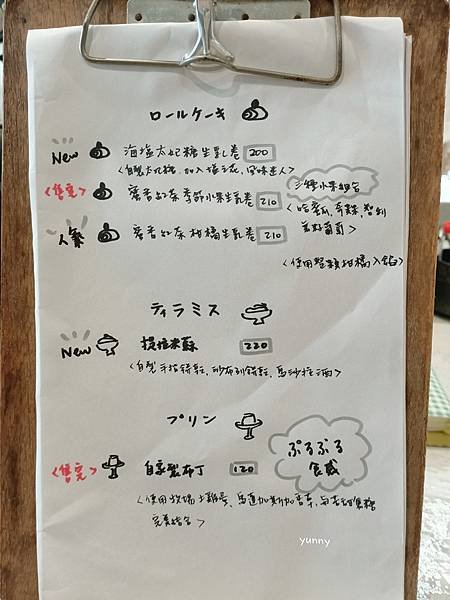 ロールケーキ
New 海塩太妃糖生乳卷 200
<自製太妃糖,加入塩之花,風味迷人>
<售完> 蜜香紅茶季節水果生乳卷 210
三種水果組合
<哈蜜瓜、奇異果、智利
美好葡萄>
人氣 蜜香紅茶柑橘生乳卷 210
<使用整顆柑橘入餡>
ティラミス
New 提拉米蘇 220
<自製手指餅乾,沙布列餅乾,馬沙拉酒>
プリン
<售完> 自家製布丁 120
ぷるぷる
食感
<使用牧場土雞蛋、馬達加斯加香草,與苦甜焦糖
完美結合>
yunny